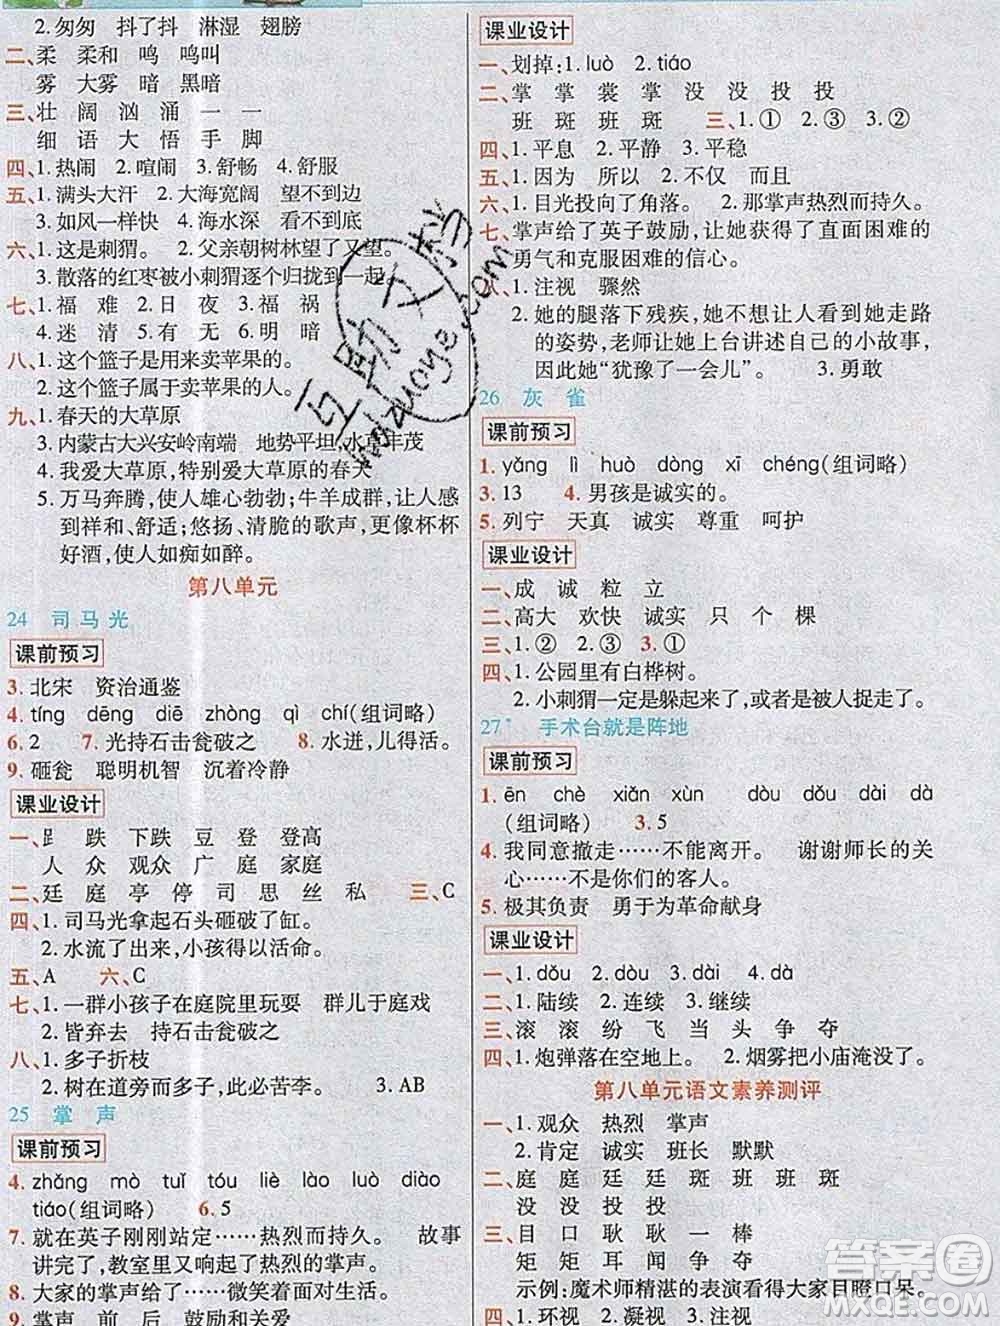 2.匆匆 抖了抖 淋湿 翅膀
二、柔 柔和 鸣 鸣叫
雾 大雾 暗 黑暗
三、壮 阔 汹 涌 一 一
细 语 大 悟 手 脚
四、1.热闹 2.喧闹 3.舒畅 4.舒服
五、1.满头大汗 2.大海宽阔 望不到边
3.如风一样快 4.海水深 看不到底
六、1.这是刺猬。 2.父亲朝树林望了又望。
3.散落的红枣被小刺猬逐个归拢到一起。
七、1.福 难 2.日 夜 3.福 祸
4.迷 清 5.有 无 6.明 暗
八、1.这个篮子是用来卖苹果的。
2.这个篮子属于卖苹果的人的。
九、1.春天的大草原
3.内蒙古大兴安岭南端 地势平坦,水草丰茂
4.我爱大草原,特别爱大草原的春天
5.万马奔腾,使人雄心勃勃;牛羊成群,让人感
到祥和、舒适;悠扬、清脆的歌声,更像杯杯
好酒,使人如痴如醉。
第八单元
24 司马光
课前预习
3.北宋 资治通鉴
4.tíng dēng diē zhòng qì chí(组词略)
6.2 7.光持石击瓮破之 8.水迸,儿得活。
9.砸瓮 聪明机智 沉着冷静
课业设计
一、𧾷 跌 下跌 豆 登 登高
人 众 观众 广 庭 家庭
二、廷 庭 亭 停 司 思 丝 私 三、C
四、1.司马光拿起石头砸破了缸。
2.水流了出来,小孩得以活命。
五、A 六、C
七、1.一群小孩子在庭院里玩耍 群儿于庭戏
2.皆弃去 持石击瓮破之
八、1.多子折枝
2.树在道旁而多子,此必苦李。 3.AB
25 掌声
课前预习
4.zhǎng mò tuǐ tóu liè lào luò diào
tiáo(组词略) 6.5
7.就在英子刚刚站定……热烈而持久。 故事
讲完了,教室里又响起了热烈的掌声。
8.大家的掌声给了……微笑着面对生活。
9.掌声 前 后 鼓励和关爱
课业设计
一、划掉:1.luò 2.tiáo
二、掌 掌 裳 掌 没 没 投 投
班 斑 斑 班 斑 三、1.① 2.③ 3.②
四、1.平息 2.平静 3.平稳
五、1.因为 所以 2.不仅 而且
六、1.目光投向了角落。 2.那掌声热烈而持久。
七、掌声给了英子鼓励,让她获得了直面困难的
勇气和克服困难的信心。
八、1.注视 骤然
2.她的腿落下残疾,她不想让人看到她走路
的姿势,老师让她上台讲述自己的小故事,
因此她“犹豫了一会儿”。 3.勇敢
26 灰雀
课前预习
1.yǎng lì huò dòng xī chéng(组词略)
3.13 4.男孩是诚实的。
5.列宁 天真 诚实 尊重 呵护
课业设计
一、成 诚 粒 立
二、高大 欢快 诚实 只 个 棵
三、1.② 2.③ 3.①
四、1.公园里有白桦树。
2.小刺猬一定是躲起来了,或者是被人捉走了。
27* 手术台就是阵地
课前预习
1.ēn chè xiǎn xùn dòu dǒu dài dà
(组词略) 3.5
4.我同意撤走……不能离开。 谢谢师长的关
心……不是你们的客人。
5.极其负责 勇于为革命献身
课业设计
一、1.dǒu 2.dòu 3.dài 4.dà
二、1.陆续 2.连续 3.继续
三、滚 滚 纷 飞 当 头 争 夺
四、1.炮弹落在空地上。 2.烟雾把小庙淹没了。
第八单元语文素养测评
一、1.观众 热烈 掌声
2.肯定 诚实 班长 默默
二、庭 庭 廷 廷 斑 班 班 斑
没 没 投 投
三、目 口 耿 耿 一 棒
矩 矩 耳 闻 争 夺
示例:魔术师精湛的表演看得大家目瞪口呆。
四、1.环视 2.凝视 3.注视
互助文档
huzuoye.com
答案圈
MXQE.COM